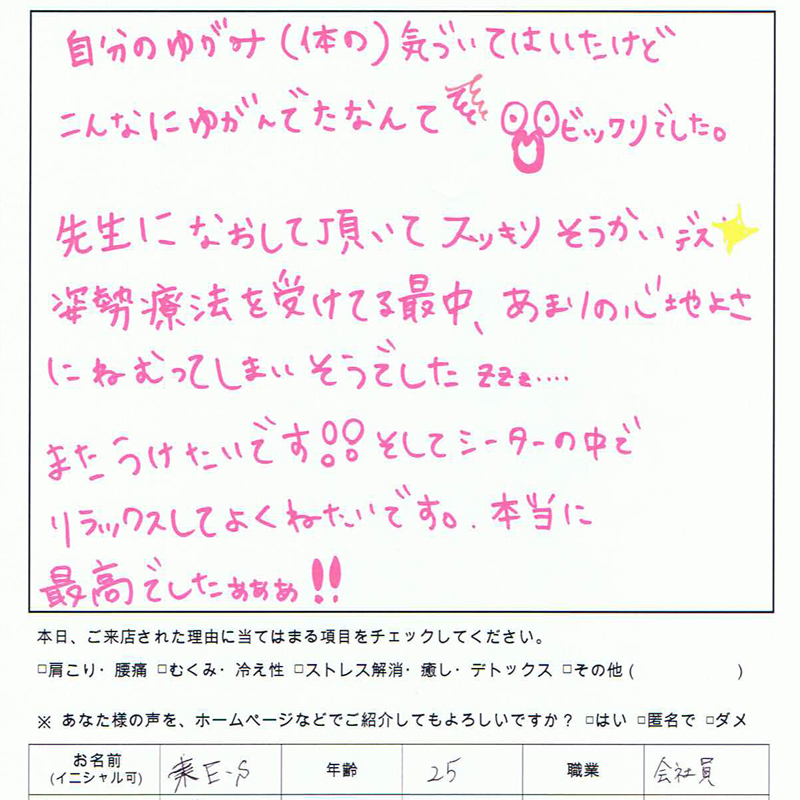 自分のゆがみ(体の)気づいてはいたけど
こんなにゆがんでたなんて ビックリでした。
先生になおして頂いてスッキリそうかいデス
姿勢療法を受けてる最中、あまりの心地よさ
にねむってしまいそうでしたzzz....
またうけたいです!! そしてシーターの中で
リラックスしてよくねたいです。本当に
最高でしたぁぁぁ!!
本日、ご来店された理由に当てはまる項目をチェックしてください。
□肩こり・腰痛 □むくみ・冷え性 □ストレス解消・癒し・デトックス □その他( )
※ あなた様の声を、ホームページなどでご紹介してもよろしいですか? □はい □匿名で □ダメ
お名前 E-S 年齢 25 職業 会社員
(イニシャル可)